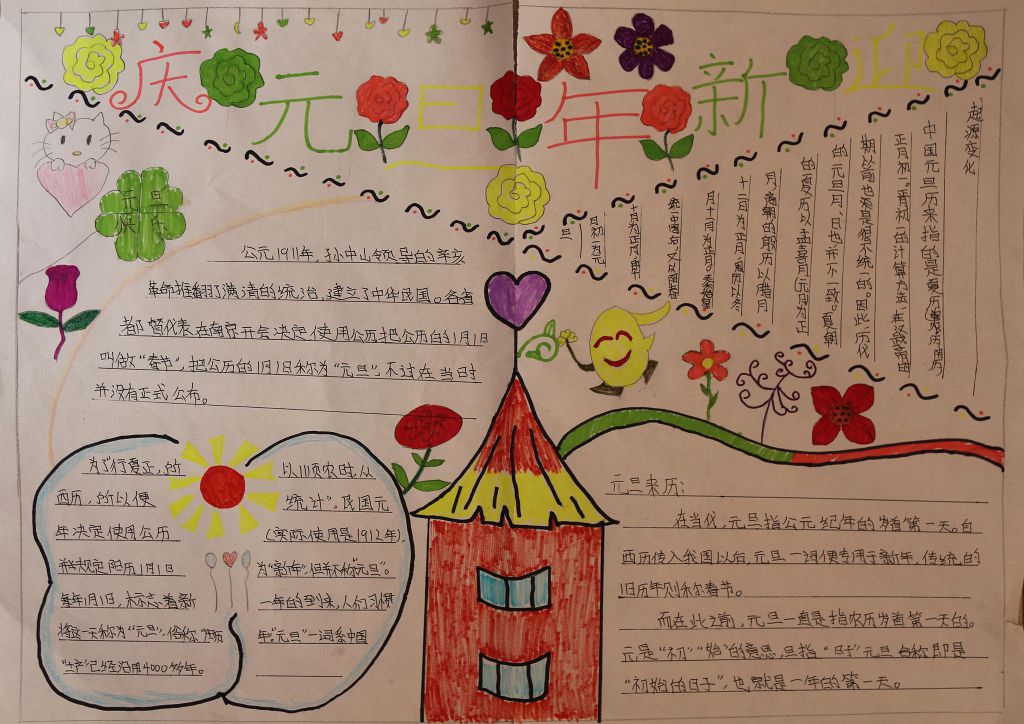 庆元旦
年新迎
元旦
快乐
公元1911年，孙中山领导的辛亥
革命推翻了满清的统治，建立了中华民国。各省
都督代表在南京开会决定使用公历把公历的1月1日
叫做“春节”，把公历的1月1日称为“元旦”，不过在当时
并没有正式公布。
起源变化
中国元旦历来指的是夏历
正月初一。正月初一的计算方法，在汉武帝
期以前也是很不统一的。因此，历代
的元旦月、日也并不一致。夏朝
的夏历以孟喜月(元月)为正
月，商朝的殷历以腊月
十二月为正月，周历以冬
月十一月为正月。秦始皇
统一中国后，又以阳春
十月为正月，即
月初一为元
旦
为了“行夏正，所
西历，所以便
年决定使用公历
并规定阳历1月1日
每年1月1日，标志着新
将这一天称为“元旦”，俗称
“生产”已经沿用4000多年。
以顺农时，从
统计”，民国元
(实际使用是1912年)，
为“新年”，但并不称“元旦”。
一年的到来，人们习惯
年“元旦”一词系中国
元旦来历：
在当代，元旦指公元纪年的岁首第一天。自
西历传入我国以后，元旦一词便专用于新年，传统的
旧历年则称春节。
而在此之前，元旦一直是指农历岁首第一天的。
元是“初”“始”的意思，旦指“日子”，元旦合称即是
“初始的日子”，也就是一年的第一天。